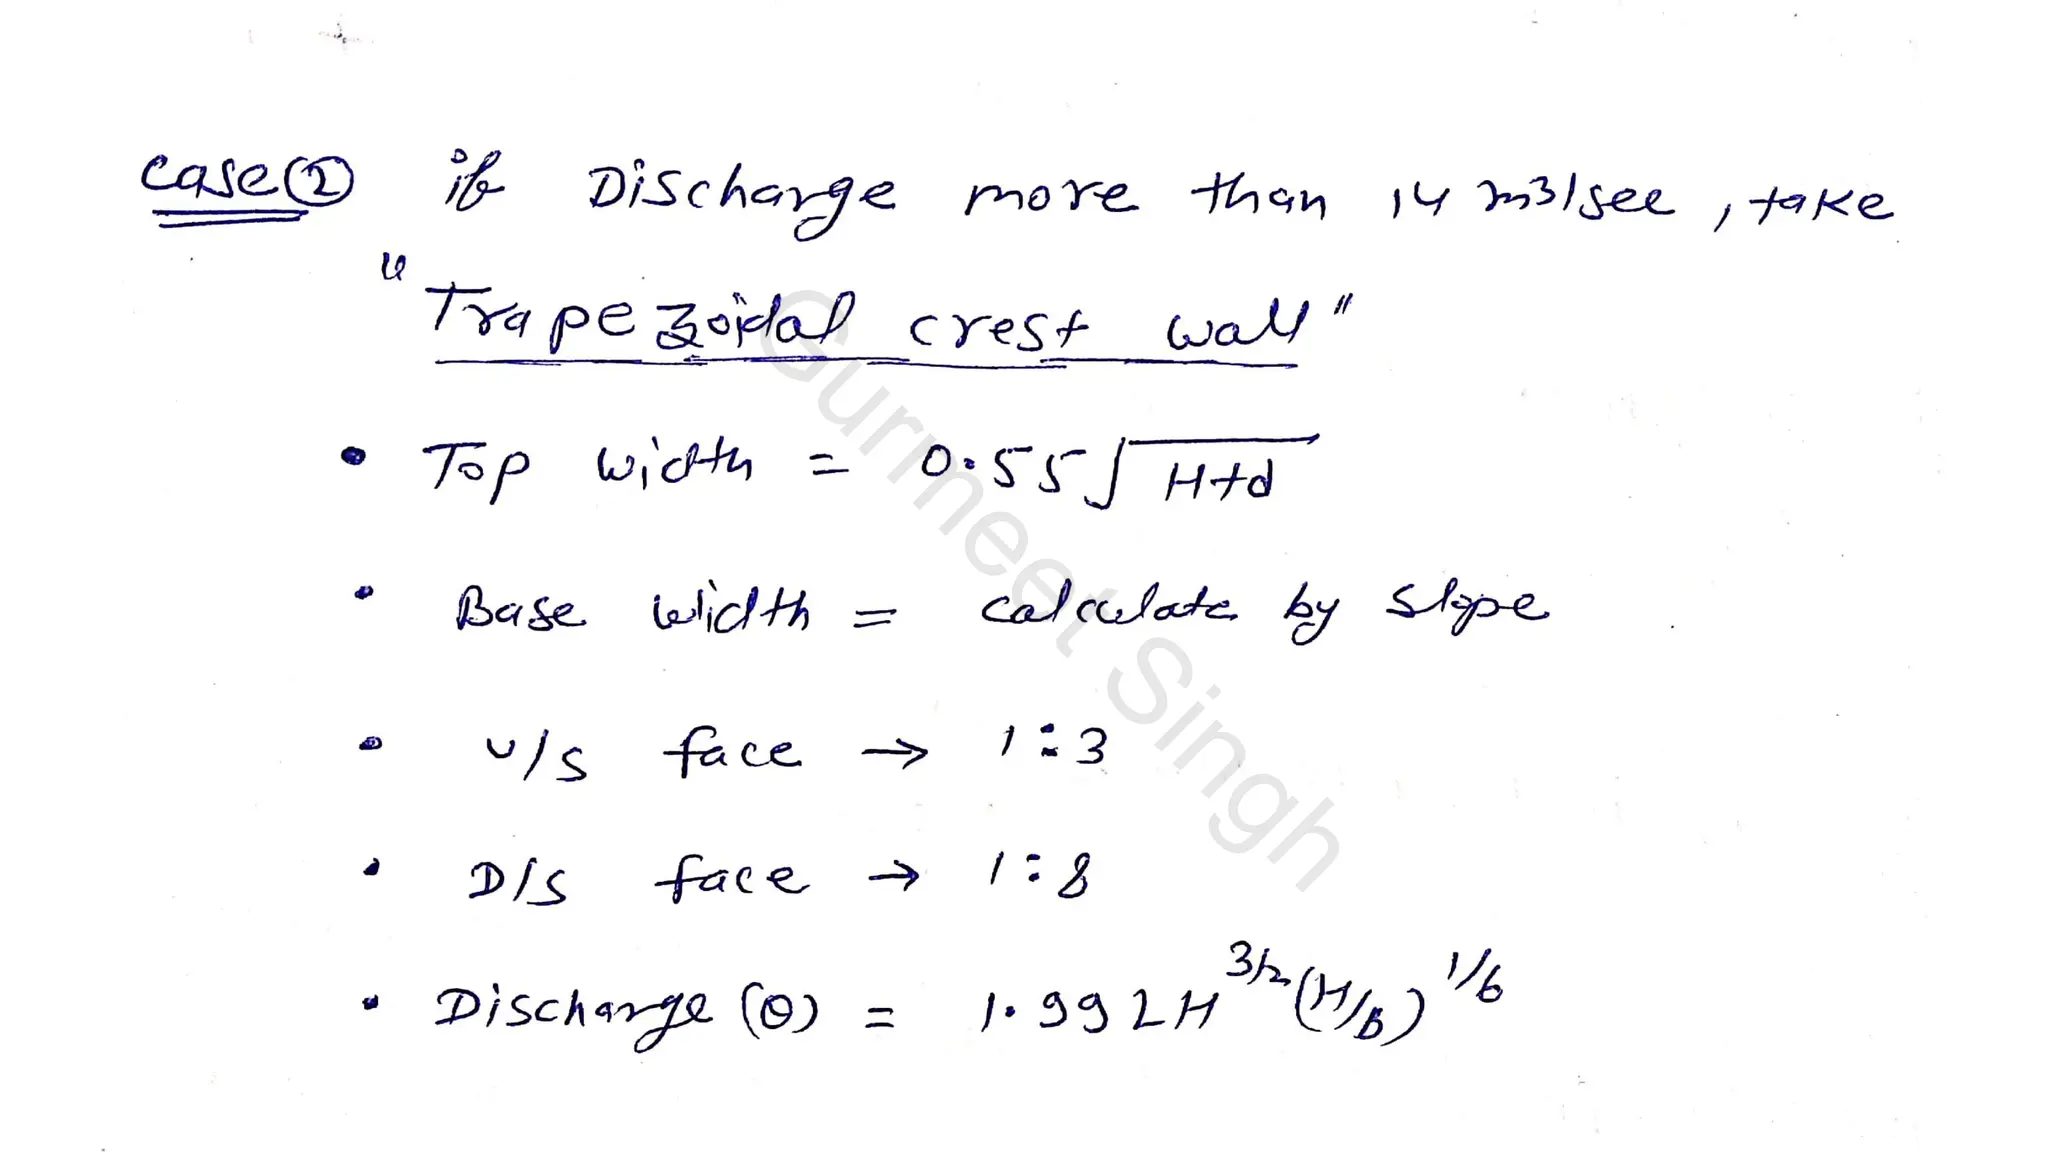 Case ② if Discharge more than 14 m3/sec, take
"Trapezoidal crest wall"
• Top width = 0.55√H+d
• Base width = calculate by slope
• U/S face → 1:3
• D/S face → 1:8
• Discharge (Q) = 1.99 L H^3/2 (H/B)^1/6
Gurmeet Singh